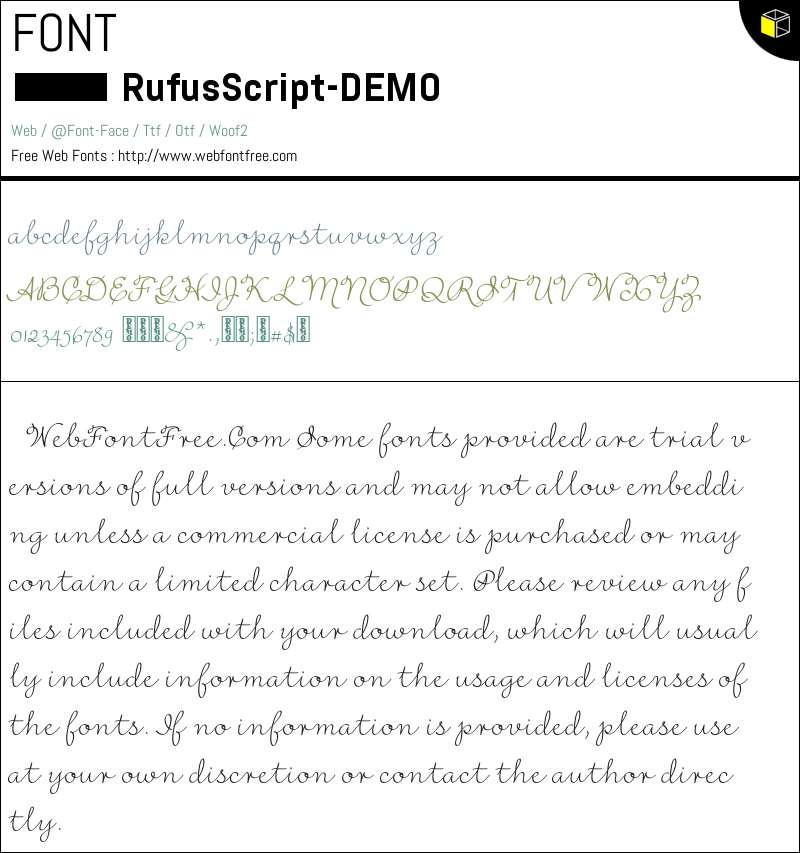 FONT
RufusScript-DEMO
Web / @Font-Face / Ttf / Otf / Woof2
Free Web Fonts : http://www.webfontfree.com
abcdefghijklmnopqrstuvwxyz
ABCDEFGHIJKLMNOPQRSTUVWXYZ
0123456789 &*.,;#$
WebFontFree.Com Some fonts provided are trial v
ersions of full versions and may not allow embeddi
ng unless a commercial license is purchased or may
contain a limited character set. Please review any f
iles included with your download, which will usual
ly include information on the usage and licenses of
the fonts. If no information is provided, please use
at your own discretion or contact the author direc
tly.